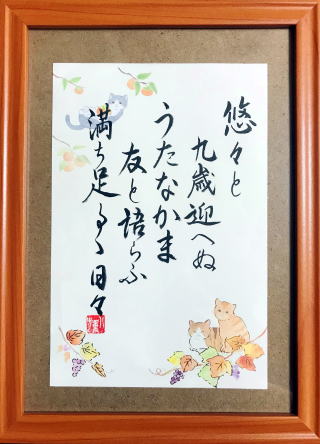 悠々と
九歳迎へぬ
うたなかま
友と語らふ
満ち足るゝ日々